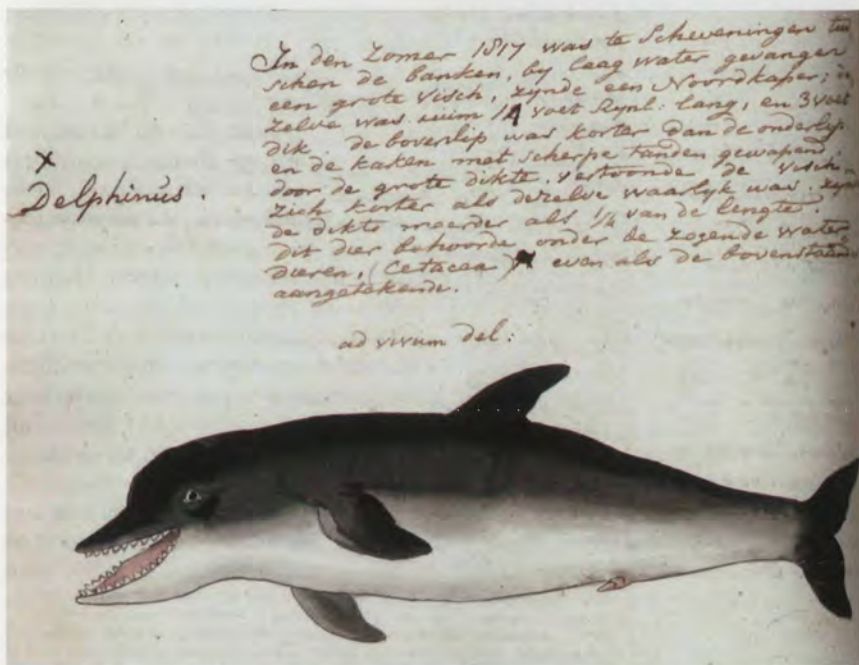 In den Zomer 1817 was te Scheveningen tus
schen de banken, by laag water gevangen
een grote Visch, zynde een Noordkaper; de
zelve was ruim 14 voet Rynl: lang, en 3 voet
dik. de bovenlip was korter dan de onderlip
en de kaken met scherpe tanden gewapend.
door de grote dikte, vertoonde de visch
zich korter als dezelve waarlyk was. zynde
de dikte meerder als 1/4 van de lengte.
dit dier behoorde onder de zogende water
dieren, (Cetacea) even als de bovenstaande
aangetekende.
x
Delphinus.
ad vivum del: